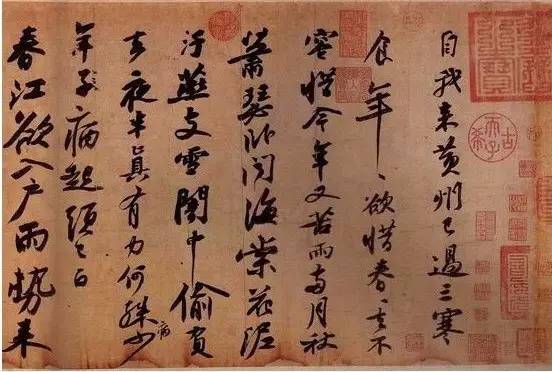 自我来黄州已過三寒
食年〻欲惜春〻去不
容惜今年又苦雨兩月秋
蕭瑟卧聞海棠花泥
汙燕支雪闇中偷負
去夜半真有力何殊少病
年子病起頭已白
春江欲入户雨勢来
古希天子